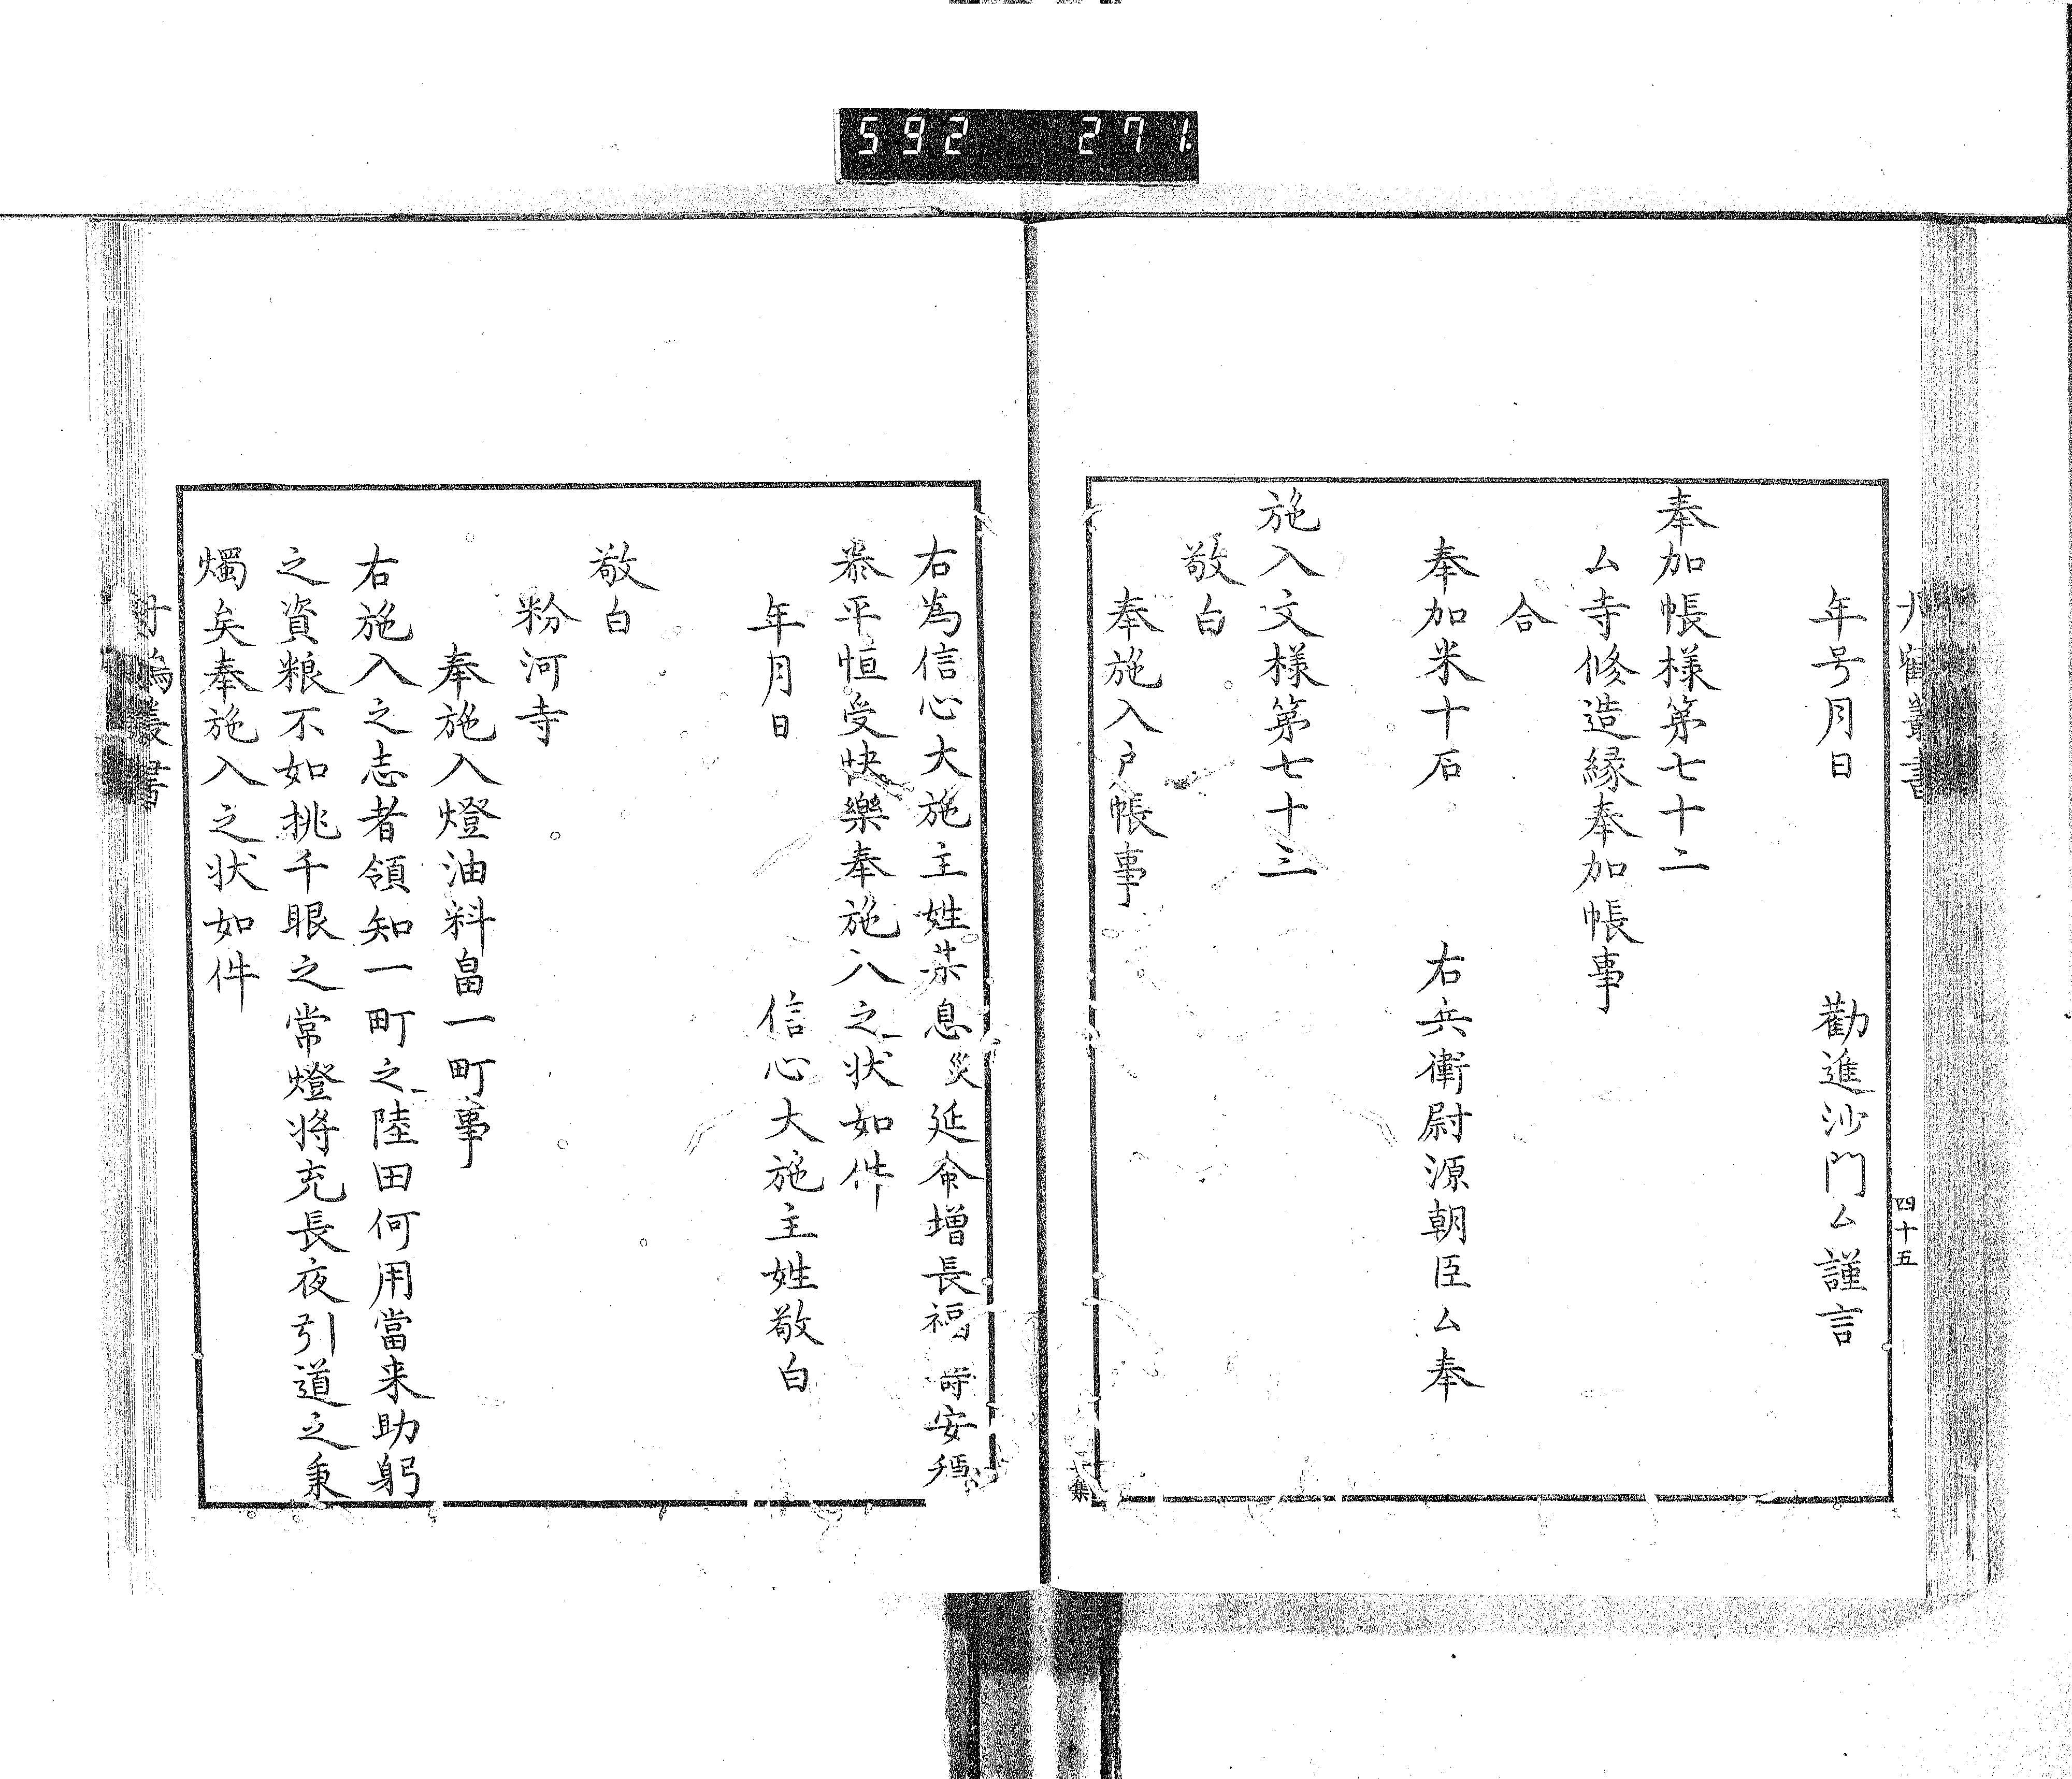 592 271
年号月日 勸進沙門ム謹言
奉加帳様第七十二
ム寺修造縁奉加帳事
合
奉加米十石 右兵衛尉源朝臣ム奉
施入文様第七十三
敬白
奉施入戸帳事
四十五
集
右為信心大施主姓某息災延命増長福 時安穏
泰平恒受快樂奉施入之状如件
年月日 信心大施主姓敬白
敬白
粉河寺
奉施入燈油料畠一町事
右施入之志者領知一町之陸田何用當来助躬
之資粮不如挑千眼之常燈将充長夜引道之秉
燭矣奉施入之状如件
叢書